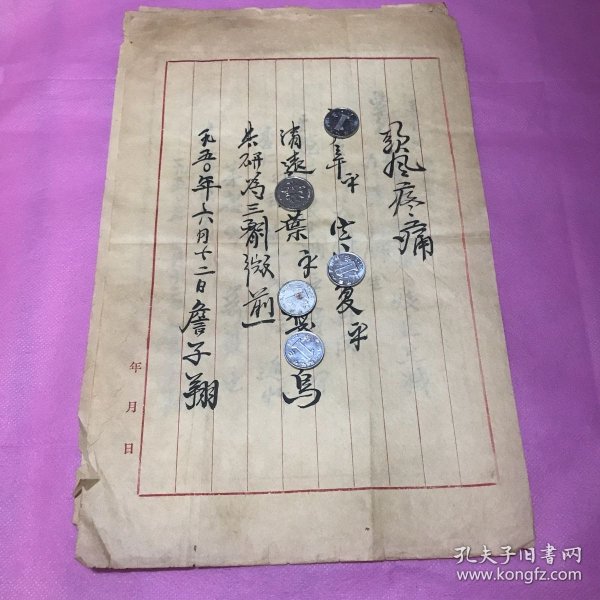 頭風疼痛
辛 平 夏 平
清遠 葉 平 烏
共研爲三劑微煎
一九五〇年六月十二日 詹子翔
年 月 日
孔夫子旧书网
www.kongfz.com